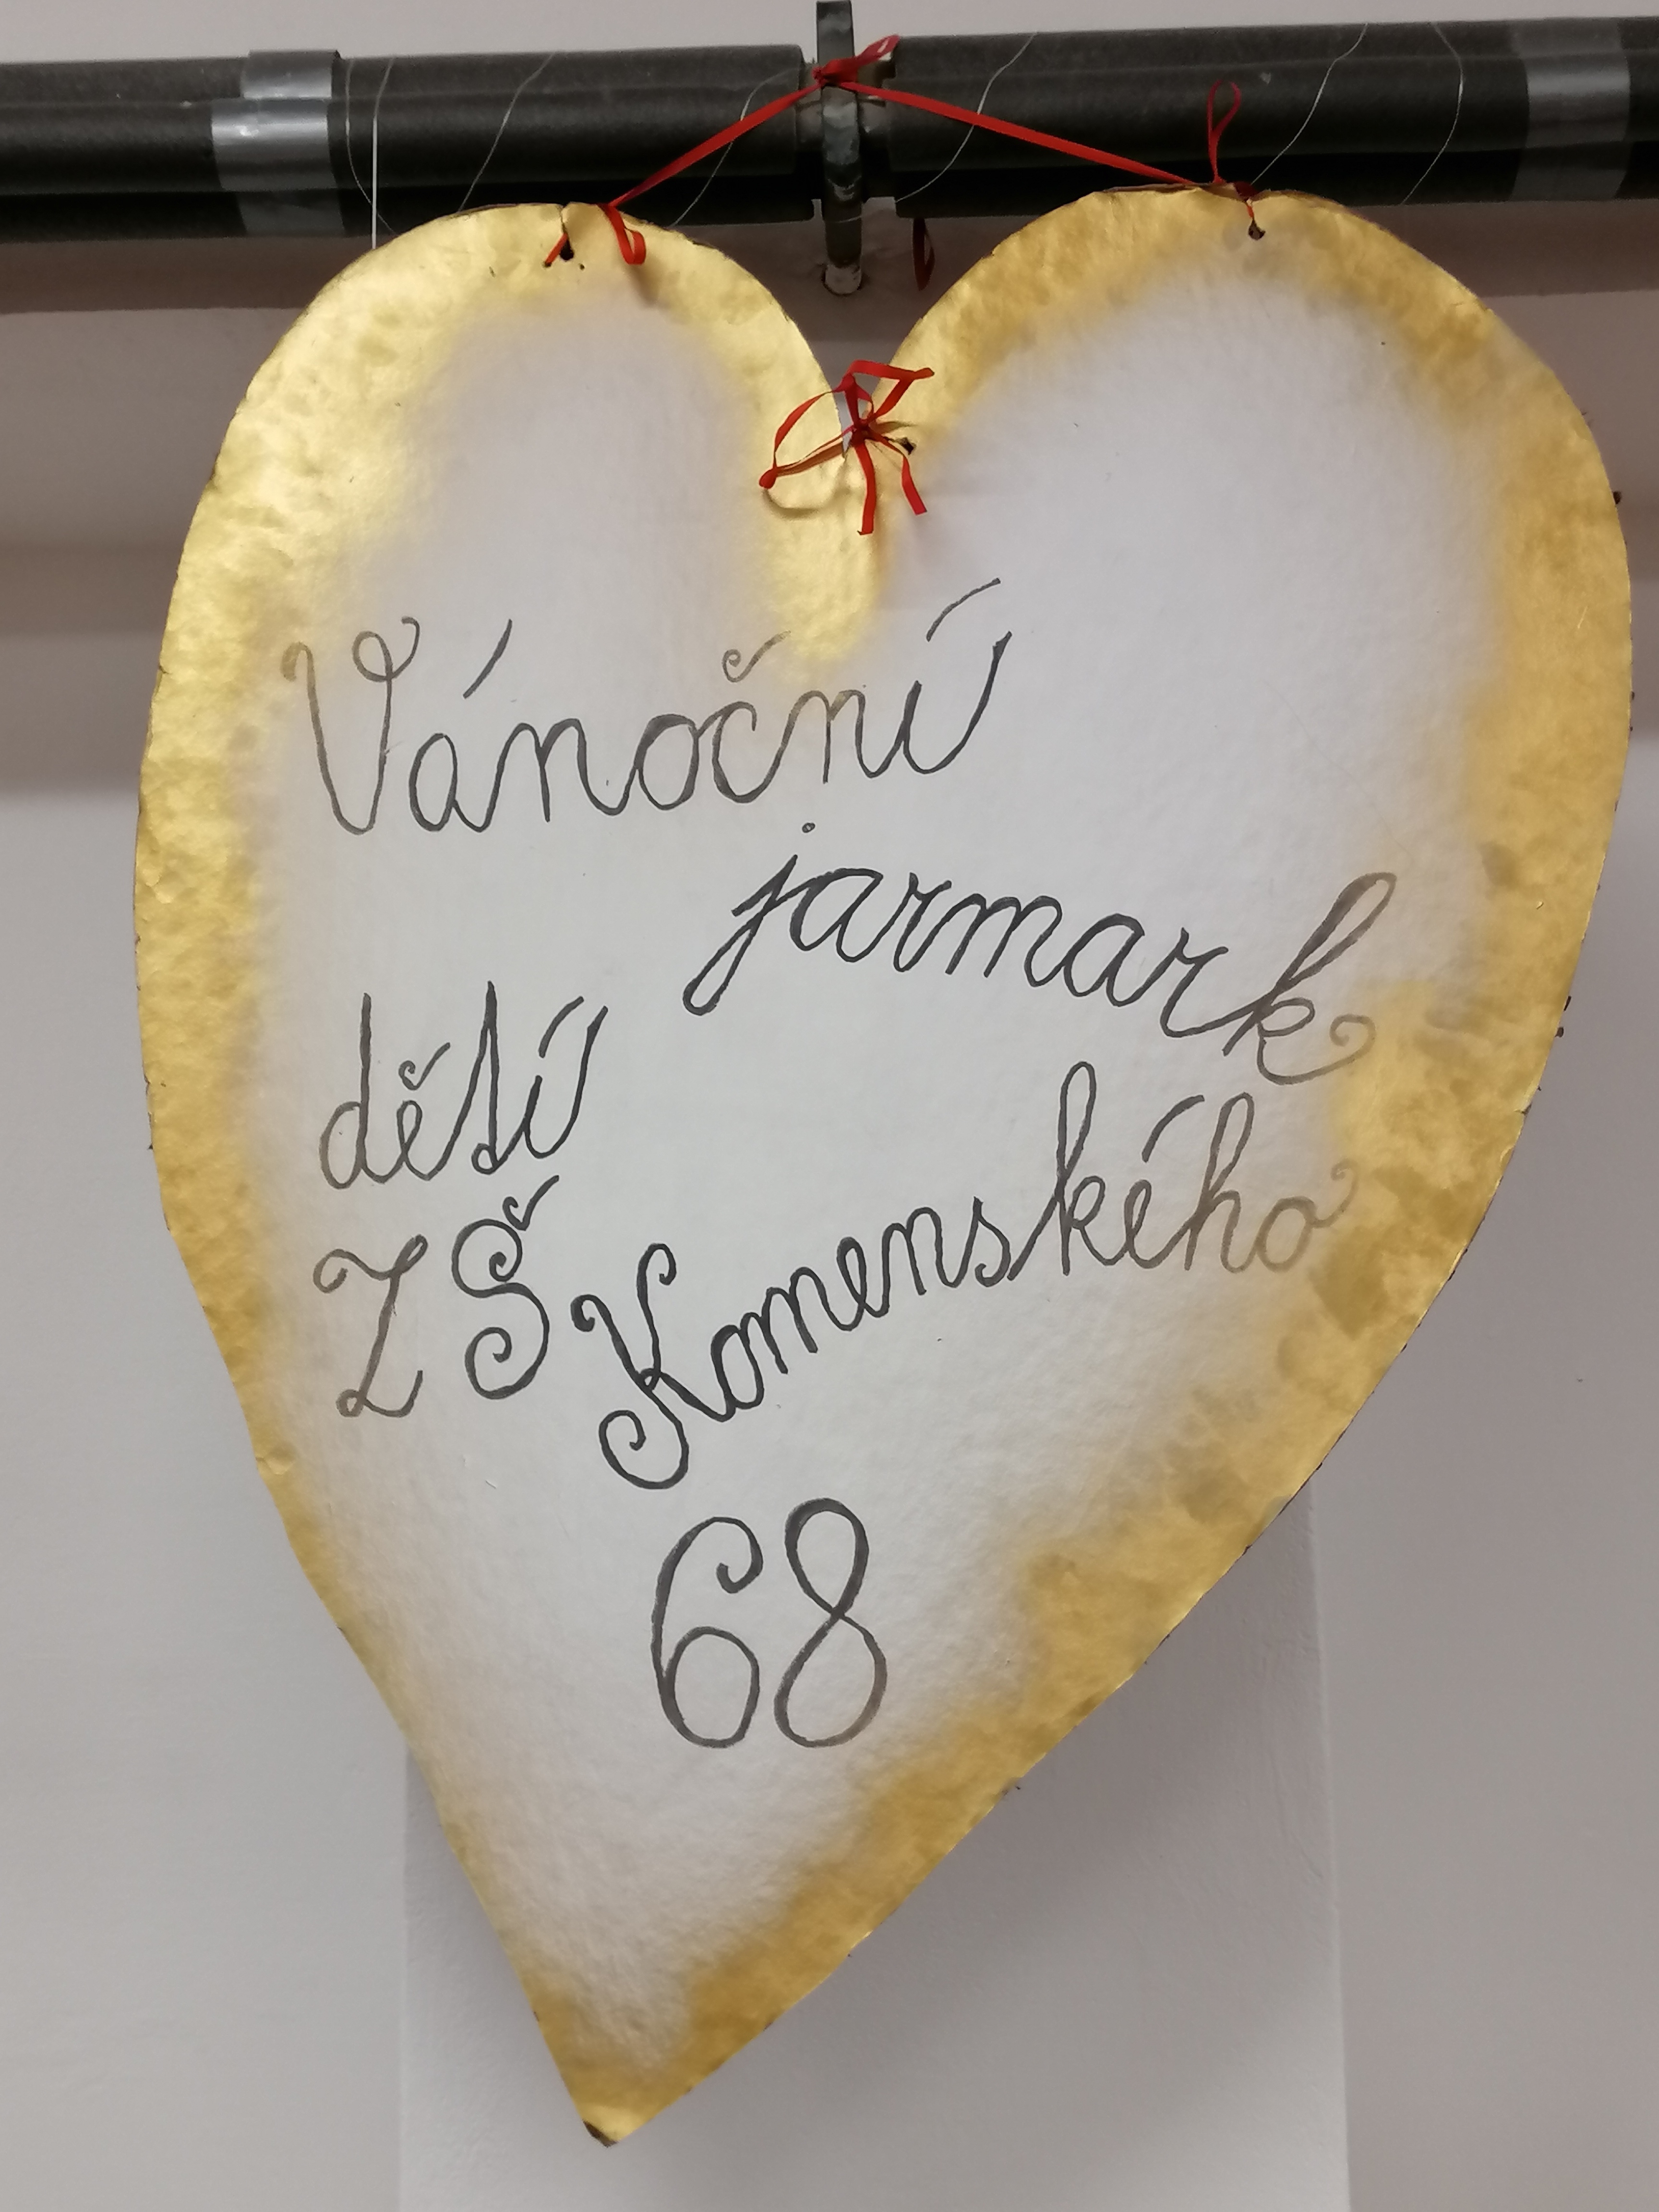 Vánoční
jarmark
dětí
ZŠ Komenského
68